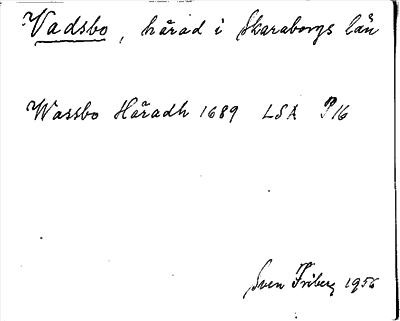 Vadsbo, härad i Skaraborgs län
Wassbo Häradh 1689 LSA P16
Sven Friberg 1956